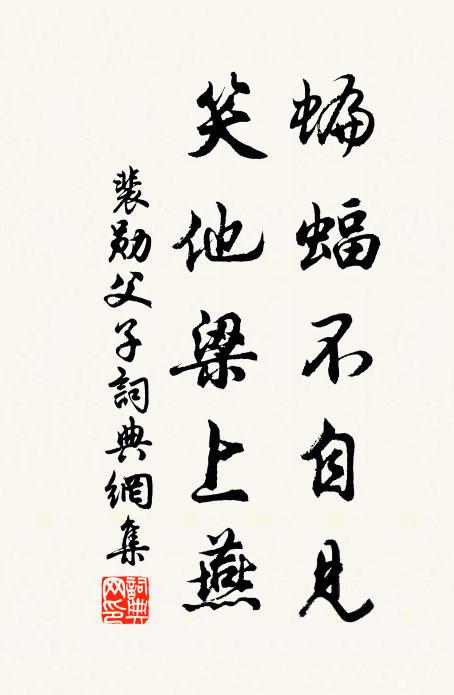 蝙蝠不自見
笑他梁上燕
裴勛父子詞典網集
詞典网印